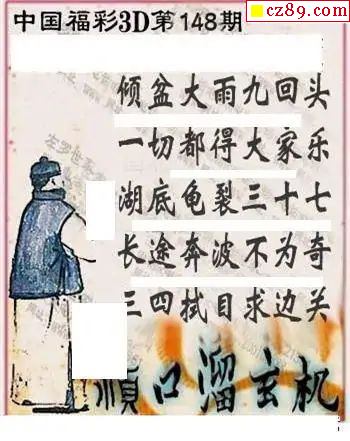 cz89.com
中国福彩3D第148期
倾盆大雨九回头
一切都得大家乐
湖底龟裂三十七
长途奔波不为奇
三四拭目求边关
顺口溜玄机